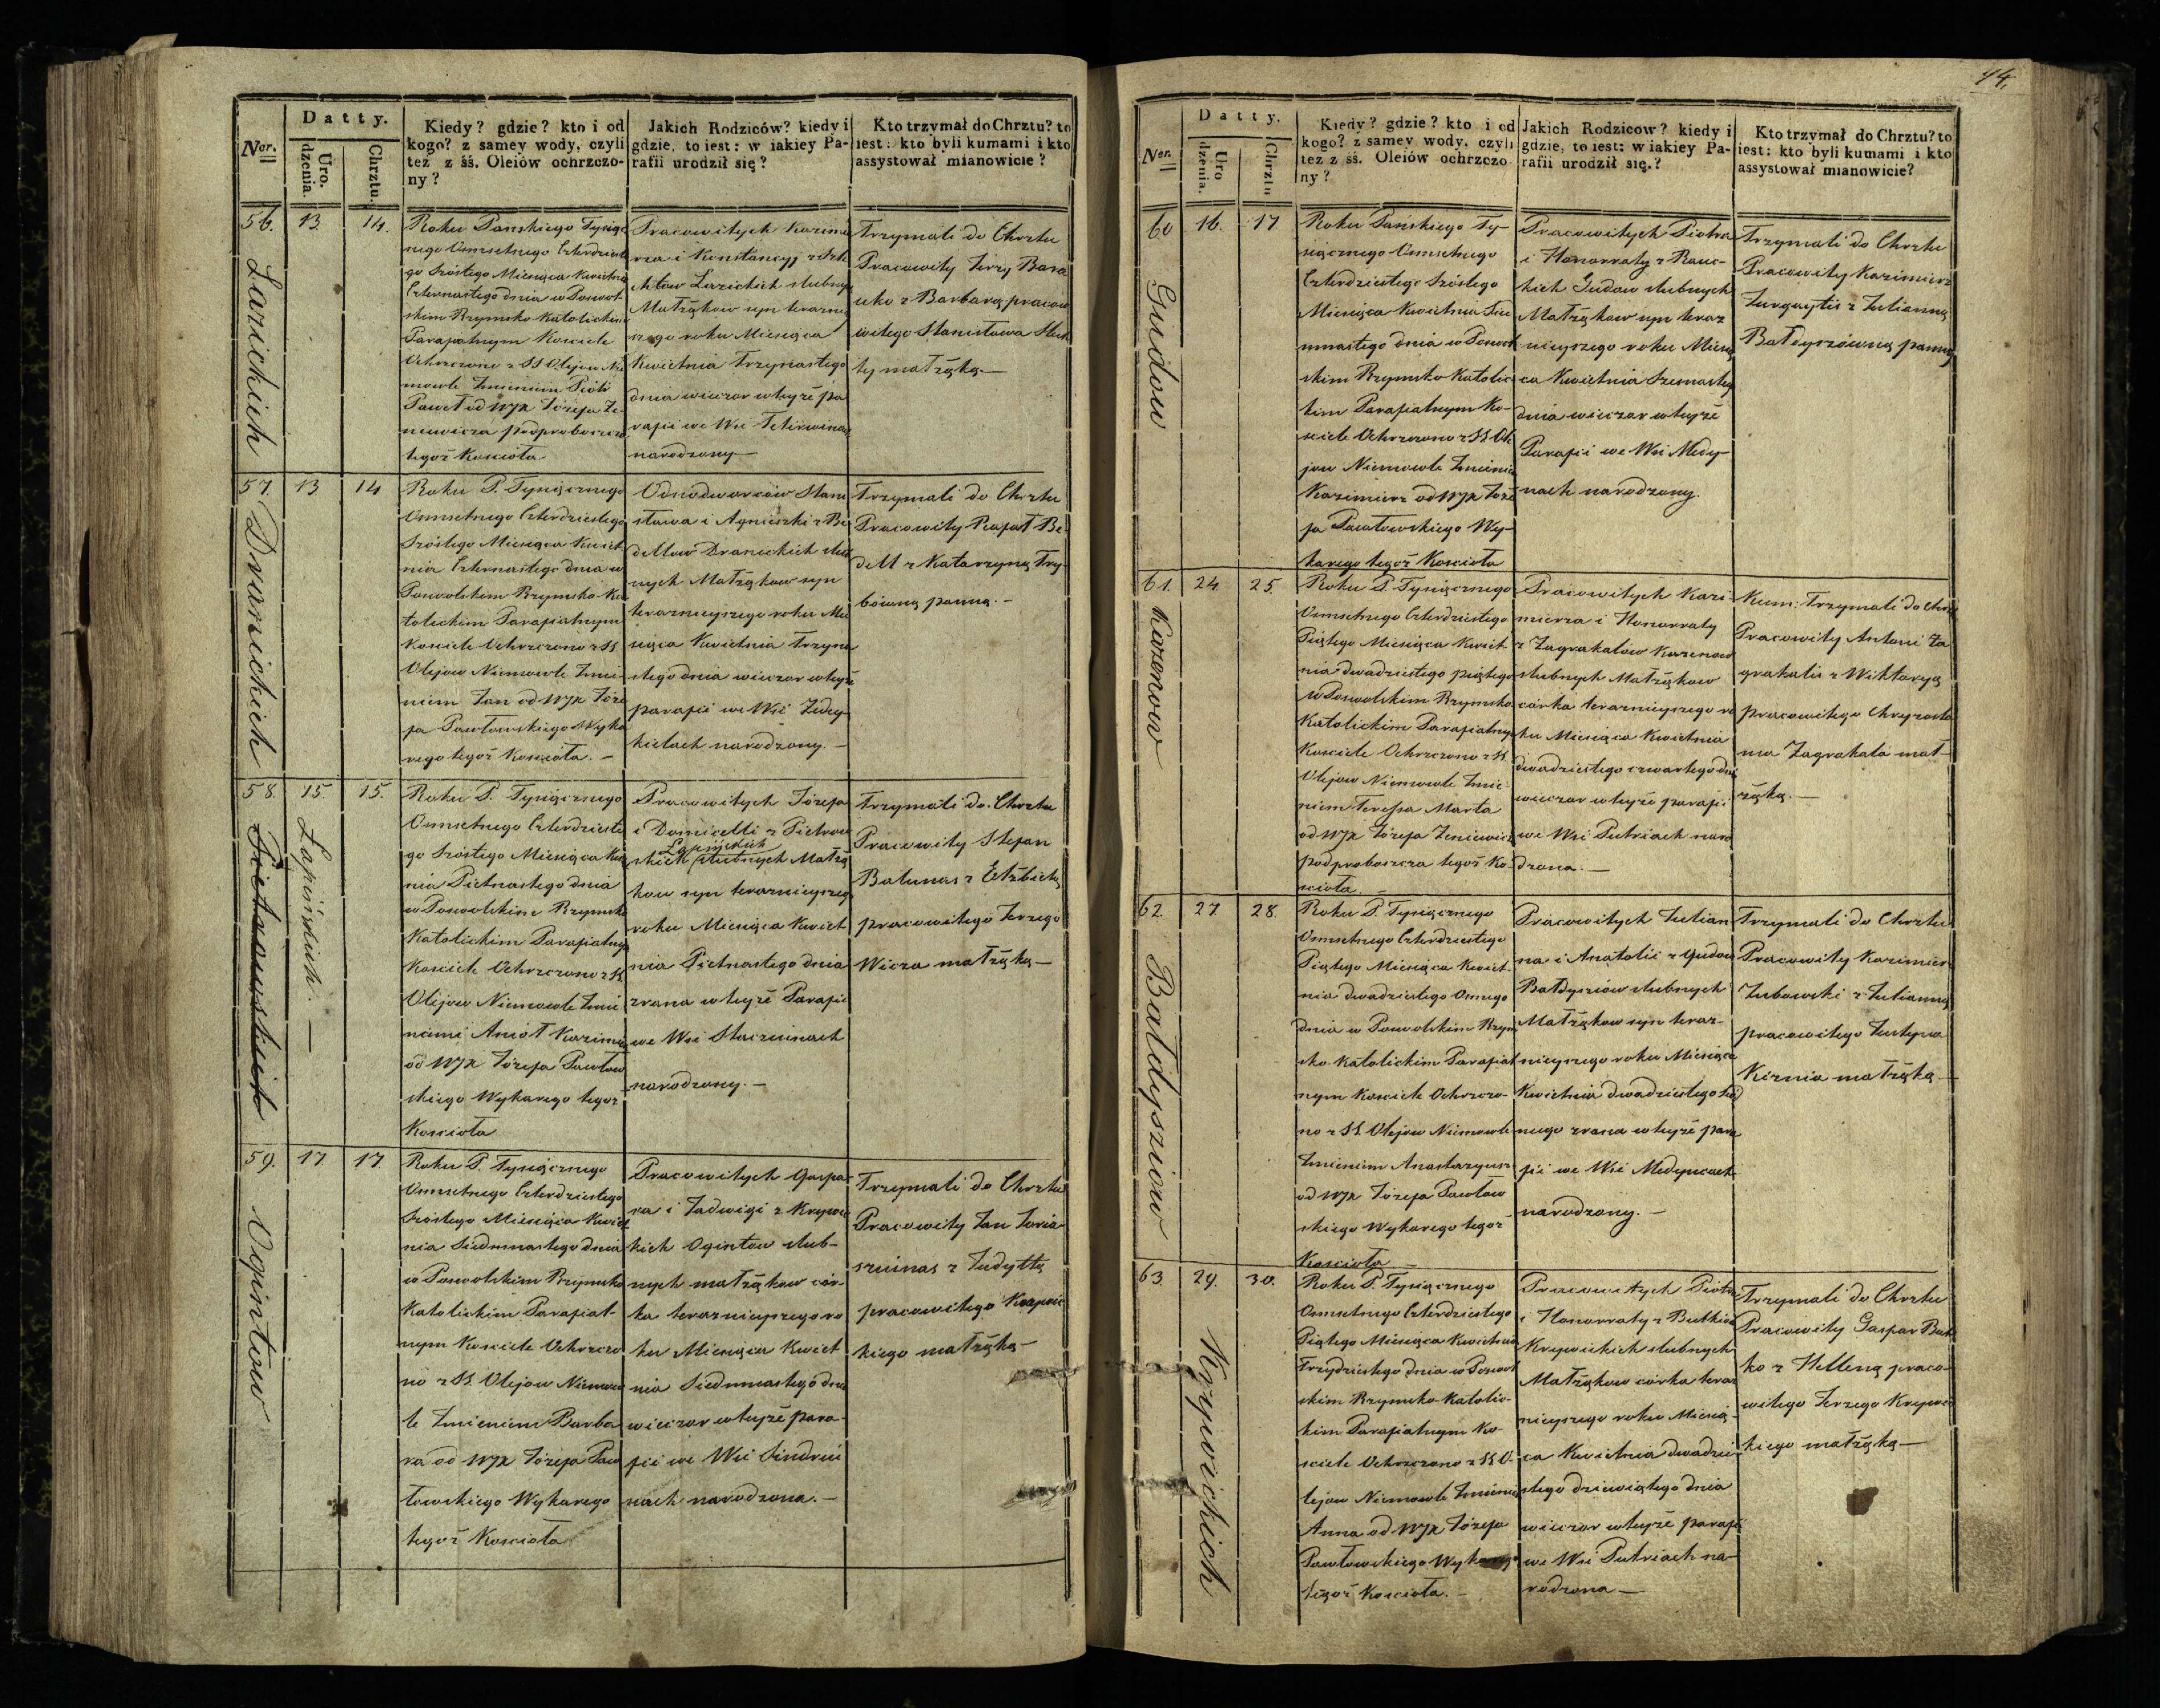 Ner.
Datty.
Uro. dzenia.
Chrztu.
Kiedy? gdzie? kto i od
kogo? z samey wody, czyli
tez z śś. Oleiów ochrzczo-
ny?
Jakich Rodziców? kiedy i
gdzie, to iest: w iakiey Pa-
rafii urodził się?
Kto trzymał do Chrztu? to
iest: kto byli kumami i kto
assystował mianowicie?
56.
13.
14.
Łazickich
Roku Panskiego Tysiącz
nego Osmsetnego Czterdzieste
go Szóstego Miesiąca Kwietnia
Czternastego dnia w Poswol
skim Rzymsko Katolickim
Parafialnym Kosciele
Ochrzczono z SS Olejow Nie
mowle Imieniem Piotr
Paweł od WJX Józefa Ze
niewicza podproboszcza
tegoż Koscioła
Pracowitych Kazimie
rza i Konstancyj z
Łazickich slubnych
Małżąkow syn teraznie
szego roku Miesiąca
Kwietnia Trzynastego
dnia wieczor wteyże pa
rafii we Wsi
narodzony
Trzymali do Chrztu
Pracowity Jerzy Bara
uko z Barbarą praco
witego Stanisława
ty małżąką
57.
13
14
Dranickich
Roku P. Tysiącznego
Osmsetnego Czterdziestego
Szóstego Miesiąca Kwiet
nia Czternastego dnia w
Poswolskim Rzymsko Ka
tolickim Parafialnym
Kosciele Ochrzczono z SS
Olejow Niemowle Imie
niem Jan od WJX Józe
fa Pawłowskiego Wyka
rego tegoż Koscioła.
Odnodworców Stani
sława i Agnieszki z Be
dellow Dranickich slub
nych Małżąkow syn
teraznieyszego roku Mie
siąca Kwietnia Trzyna
stego dnia wieczor wteyże
parafii we Wsi
narodzony.
Trzymali do Chrztu
Pracowity Rafał Be
dell z Katarzyną Try
bówną panną.
58.
15.
15.
Pietrowskich
Łapińskich.
Roku P. Tysiącznego
Osmsetnego Czterdzieste
go Szóstego Miesiąca Kwiet
nia Pietnastego dnia
w Poswolskim Rzymsko
Katolickim Parafialnym
Kosciele Ochrzczono z SS
Olejow Niemowle Imie
niami Anioł Kazimierz
od WJX Józefa Pawłow
skiego Wykarego tegoż
Koscioła
Pracowitych Józefa
i Domicelli z Pietrow
Łapińskich
skich slubnych Małżą
kow syn teraznieyszego
roku Miesiąca Kwiet
nia Pietnastego dnia
zrana wteyże Parafii
we Wsi Staczunach
narodzony.
Trzymali do Chrztu
Pracowity Stefan
Balunas z Elżbietą
pracowitego Jerzego
Wicza małżąką
59.
17
17.
Ogintow
Roku P. Tysiącznego
Osmsetnego Czterdziestego
Szóstego Miesiąca Kwiet
nia Siedmnastego dnia
w Poswolskim Rzymsko
Katolickim Parafial
nym Kosciele Ochrzczo
no z SS. Olejow Niemow
le Imieniem Barba
ra od WJX Józefa Paw
łowskiego Wykarego
tegoż Koscioła
Pracowitych Gaspa
ra i Jadwigi z Krywic
kich Ogintow slub-
nych małżąkow cór-
ka teraznieyszego ro
ku Miesiąca Kwiet
nia Siedmnastego dnia
wieczor wteyże para-
fii we Wsi
nach narodzona.
Trzymali do Chrztu
Pracowity Jan Juria
szunas z Judyttą
pracowitego Krywic
kiego małżąką
74.
Ner.
Datty.
Uro dzenia.
Chrztu
Kiedy? gdzie? kto i od
kogo? z samey wody, czyli
tez z śś. Oleiów ochrzczo
ny?
Jakich Rodziców? kiedy i
gdzie, to iest: w iakiey Pa-
rafii urodził się.?
Kto trzymał do Chrztu? to
iest: kto byli kumami i kto
assystował mianowicie?
60
16.
17
Gudow
Roku Pańskiego Ty-
siącznego Osmsetnego
Czterdziestego Szóstego
Miesiąca Kwietnia Sied
mnastego dnia w Poswol
skim Rzymsko Katolic
kim Parafialnym Ko-
sciele Ochrzczono z SS. Ole
jow Niemowle Imieniem
Kazimierz od WJX Józe
fa Pawłowskiego Wy-
karego tegoż Koscioła
Pracowitych Piotra
i Honorraty z Rauc-
kich Gudow slubnych
Małżąkow syn teraz
nieyszego roku Miesią
ca Kwietnia Szesnastego
dnia wieczor wteyże
Parafii we Wsi Medy-
nach narodzony.
Trzymali do Chrztu
Pracowity Kazimierz
Jurgaytis z Julianną
Bałdyszówną panną
61.
24
25.
Karenow
Roku P. Tysiącznego
Osmsetnego Czterdziestego
Piątego Miesiąca Kwiet
nia dwadziestego piątego
w Poswolskim Rzymsko
Katolickim Parafialnym
Kosciele Ochrzczono z SS.
Olejow Niemowle Imie
niem Teressa Marta
od WJX Józefa Zeniewicza
podproboszcza tegoż Ko
scioła.
Pracowitych Kazi-
mierza i Honorraty
z Zagrakalow Karenow
slubnych Małżąkow
córka teraznieyszego ro
ku Miesiąca Kwietnia
dwadziestego czwartego dnia
wieczor wteyże parafii
we Wsi Putriach naro
dzona.
Kum: Trzymali do Chrztu
Pracowity Antoni Za
grakalis z Wiktoryą
pracowitego Chryzosto
ma Zagrakala mał-
żąką.
62.
27
28.
Baldysziow
Roku P. Tysiącznego
Osmsetnego Czterdziestego
Piątego Miesiąca Kwiet-
nia dwadziestego Osmego
dnia w Poswolskim Rzym
sko Katolickim Parafial
nym Kosciele Ochrzczo-
no z SS. Olejow Niemowle
Imieniem Anastazyusz
od WJX Józefa Pawłow
skiego Wykarego tegoż
Koscioła
Pracowitych Julian
na i Anatolii z Gudow
Bałdysziow slubnych
Małżąkow syn teraz-
nieyszego roku Miesiąca
Kwietnia dwadziestego Siod
mego zrana wteyże para
fii we Wsi
narodzony.
Trzymali do Chrztu
Pracowity Kazimierz
Zubowski z Julianną
pracowitego Justyna
Kiznia małżąką
63
29.
30.
Krywickich
Roku P. Tysiącznego
Osmsetnego Czterdziestego
Piątego Miesiąca Kwietnia
Trzydziestego dnia w Poswol
skim Rzymsko Katolic-
kim Parafialnym Ko-
sciele Ochrzczono z SS. O-
lejow Niemowle Imieniem
Anna od WJX Józefa
Pawłowskiego Wykarego
tegoż Koscioła.
Pracowitych Piotra
i Honorraty z Butkiow
Krywickich slubnych
Małżąkow córka teraz
nieyszego roku Miesią-
ca Kwietnia dwadzie-
stego dziewiątego dnia
wieczor wteyże parafii
we Wsi Putriach na-
rodzona
Trzymali do Chrztu
Pracowity Gaspar But
ko z Helleną praco-
witego Jerzego Krywic
kiego małżąką